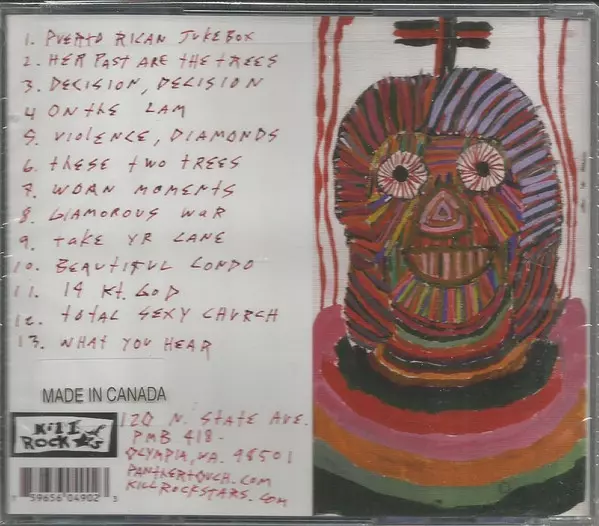 1. PUERTO RICAN JUKEBOX
2. HER PAST ARE THE TREES
3. DECISION, DECISION
4 ON THE LAM
5. VIOLENCE, DIAMONDS
6. THESE TWO TREES
7. WORN MOMENTS
8. GLAMOROUS WAR
9. TAKE YR LANE
10. BEAUTIFUL CONDO
11. 14 KT. GOD
12. TOTAL SEXY CHURCH
13. WHAT YOU HEAR
MADE IN CANADA
KILL
ROCK
120 N. STATE AVE.
PMB 418-
OLYMPIA, WA. 98501
PANTHERTOUCH.COM
KILLROCKSTARS.COM
7 59656 04902 3